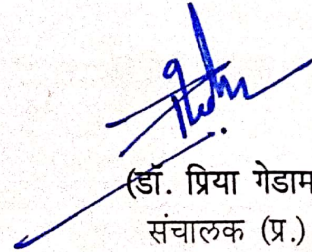 (डॉ. प्रिया गेडाम
संचालक (प्र.)